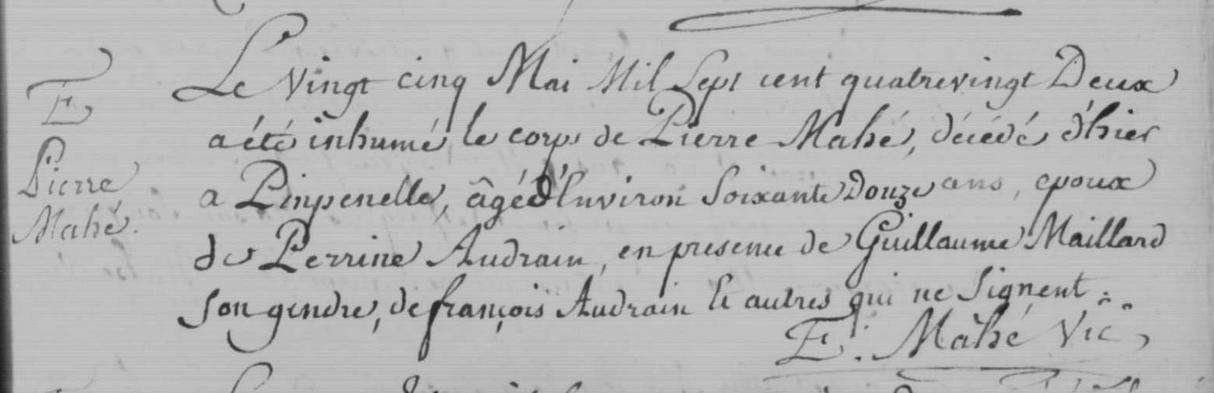 E
Pierre
Mahé.
Le Vingt cinq Mai Mil Sept cent quatrevingt Deux
a été inhumé le corps de Pierre Mahé, décédé d'hier
a Pinpenelle, âgé d'Environ Soixante Douze ans, epoux
de Perrine Audrain, en presence de Guillaume Maillard
son gendre, de françois Audrain & autres qui ne Signent.
E. Mahé Vic